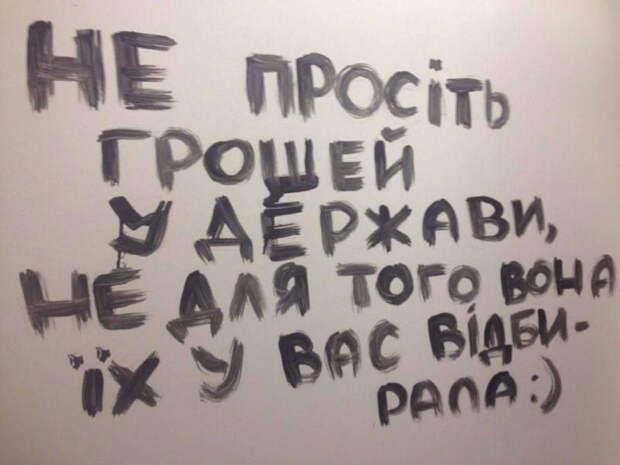 НЕ ПРОСІТЬ
ГРОШЕЙ
У ДЕРЖАВИ,
НЕ ДЛЯ ТОГО ВОНА
ЇХ У ВАС ВІДБИ-
РАЛА :)